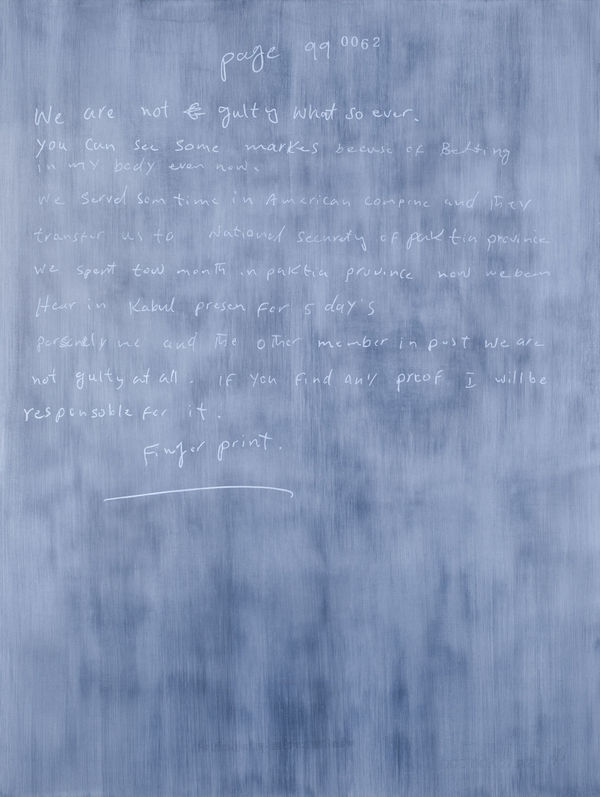 page 99 0062
We are not gulty what so ever.
you can see some markes becuse of Betting
in my body even now.
we served som time in American compine and they
transfer us to National securaty of paktia province
we spent tow month in paktia province now we been
Hear in Kabul presen for 5 day's
persenely me and the other member in post we are
not gulty at all. IF you find any proof I will be
responsoble for it.
Finger print.